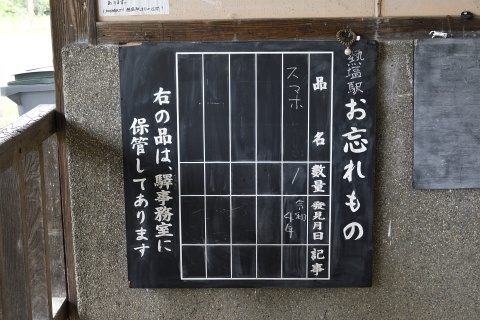 熱塩駅
お忘れもの
品名
数量
発見月日
記事
スマホ
1
令和
4年
右の品は、驛事務室に
保管してあります